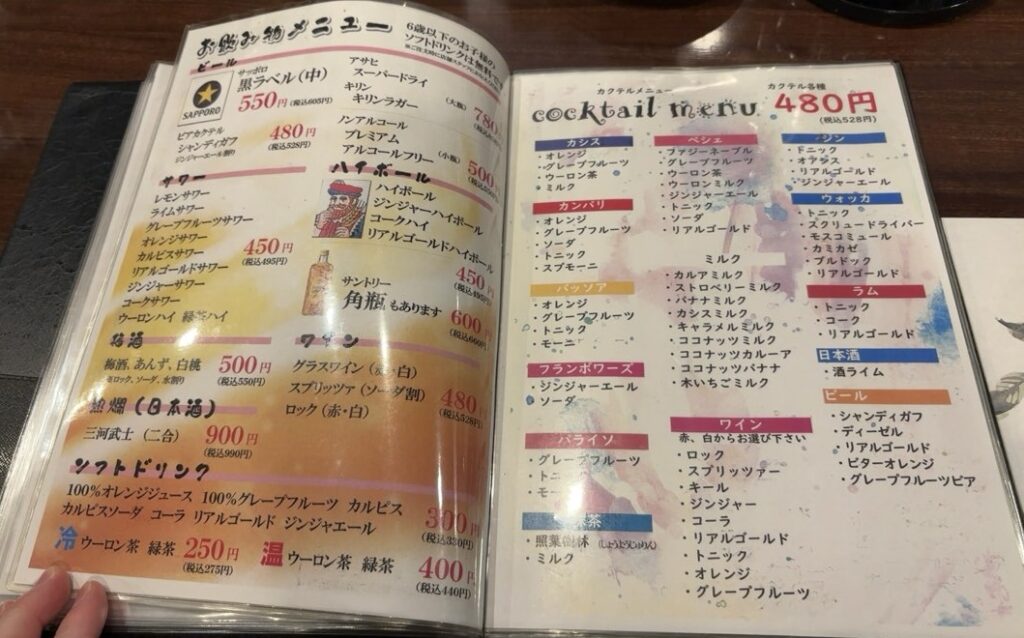 お飲み物メニュー
6歳以下のお子様の
ソフトドリンクは無料です
ビール
SAPPORO
サッポロ
黒ラベル(中)
550円(税込605円)
ビアカクテル
シャンディガフ
ジンジャーエール割り
480円
(税込528円)
アサヒ
スーパードライ
キリン
キリンラガー
(大瓶)
780
ノンアルコール
プレミアム
アルコールフリー
(小瓶)
500
サワー
レモンサワー
ライムサワー
グレープフルーツサワー
オレンジサワー
カルピスサワー
リアルゴールドサワー
ジンジャーサワー
コークサワー
ウーロンハイ 緑茶ハイ
450円
(税込495円)
ハイボール
ハイボール
ジンジャーハイボール
コークハイ
リアルゴールドハイボール
450円
(税込495円)
サントリー
角瓶もあります
600円
(税込660円)
梅酒
梅酒、あんず、白桃
※ロック、ソーダ、水割り
500円
(税込550円)
ワイン
グラスワイン(赤・白)
スプリッツァ(ソーダ割)
ロック(赤・白)
480円
(税込528円)
熱燗(日本酒)
三河武士(二合)
900円
(税込990円)
ソフトドリンク
100%オレンジジュース 100%グレープフルーツ カルピス
カルピスソーダ コーラ リアルゴールド ジンジャエール
300円
(税込330円)
冷 ウーロン茶 緑茶 250円
(税込275円)
温 ウーロン茶 緑茶 400円
(税込440円)
カクテルメニュー
cocktail menu
カクテル各種
480円
(税込528円)
カシス
・オレンジ
・グレープフルーツ
・ウーロン茶
・ミルク
カンパリ
・オレンジ
・グレープフルーツ
・ソーダ
・トニック
・スプモーニ
パッソア
・オレンジ
・グレープフルーツ
・トニック
・モーニ
フランボワーズ
・ジンジャーエール
・ソーダ
パライソ
・グレープフルーツ
茶
・照葉樹林 (しょうようじゅりん)
・ミルク
ペシェ
・ファジーネーブル
・グレープフルーツ
・ウーロン茶
・ウーロンミルク
・ジンジャーエール
・トニック
・ソーダ
・リアルゴールド
ミルク
・カルアミルク
・ストロベリーミルク
・バナナミルク
・カシスミルク
・キャラメルミルク
・ココナッツミルク
・ココナッツカルーア
・ココナッツバナナ
・木いちごミルク
ワイン
赤、白からお選び下さい
・ロック
・スプリッツァー
・キール
・ジンジャー
・コーラ
・リアルゴールド
・トニック
・オレンジ
・グレープフルーツ
ジン
・トニック
・オヤジス
・リアルゴールド
・ジンジャーエール
ウォッカ
・トニック
・スクリュードライバー
・モスコミュール
・カミカゼ
・ブルドック
・リアルゴールド
ラム
・トニック
・コーク
・リアルゴールド
日本酒
・酒ライム
ビール
・シャンディガフ
・ディーゼル
・リアルゴールド
・ビターオレンジ
・グレープフルーツビア